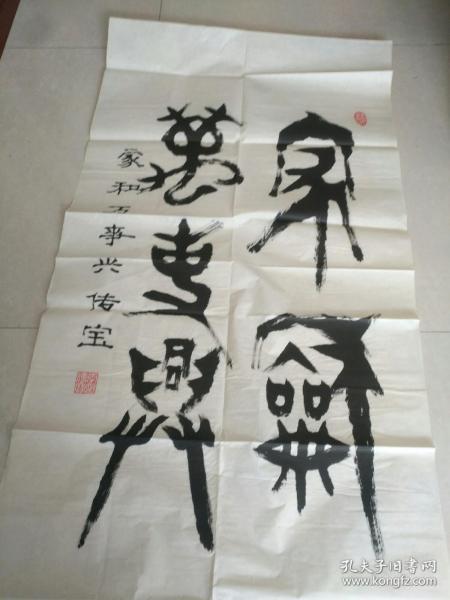 家龢
萬事興
家和万事兴传宝
孔夫子旧书网
www.kongfz.com